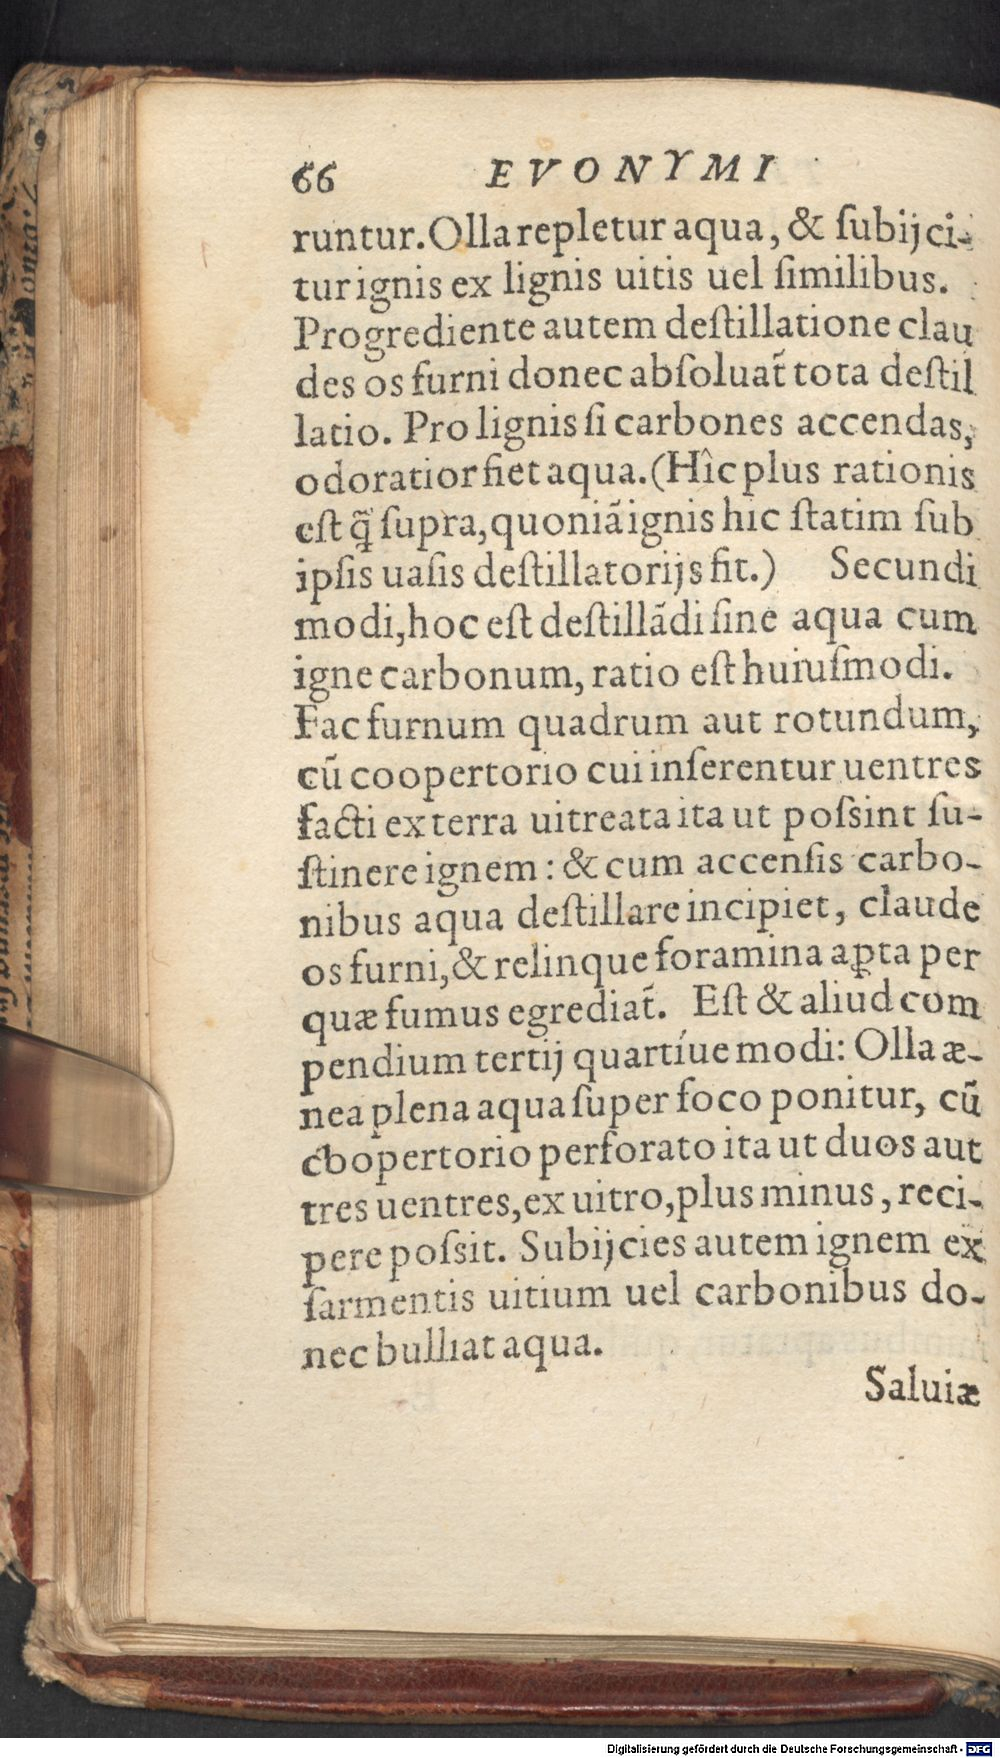 66 EVONYMI
runtur. Olla repletur aqua, & ſubijci-
tur ignis ex lignis uitis uel ſimilibus.
Progrediente autem deſtillatione clau
des os furni donec abſoluat̃ tota deſtil
latio. Pro lignis ſi carbones accendas,
odoratior fiet aqua. (Hîc plus rationis
eſt q̃ ſupra, quoniã ignis hic ſtatim ſub
ipſis uaſis deſtillatorijs fit.) Secundi
modi, hoc eſt deſtillãdi ſine aqua cum
igne carbonum, ratio eſt huiuſmodi.
Fac furnum quadrum aut rotundum,
cũ coopertorio cui inſerentur uentres
facti ex terra uitreata ita ut poſsint ſu-
ſtinere ignem: & cum accenſis carbo-
nibus aqua deſtillare incipiet, claude
os furni, & relinque foramina aꝑta per
quæ fumus egrediat̃. Eſt & aliud com
pendium tertij quartíue modi: Olla æ-
nea plena aqua ſuper foco ponitur, cũ
coopertorio perforato ita ut duos aut
tres uentres, ex uitro, plus minus, reci-
pere poſsit. Subijcies autem ignem ex
ſarmentis uitium uel carbonibus do-
nec bulliat aqua.
Saluiæ
Digitalisierung gefördert durch die Deutsche Forschungsgemeinschaft - DFG